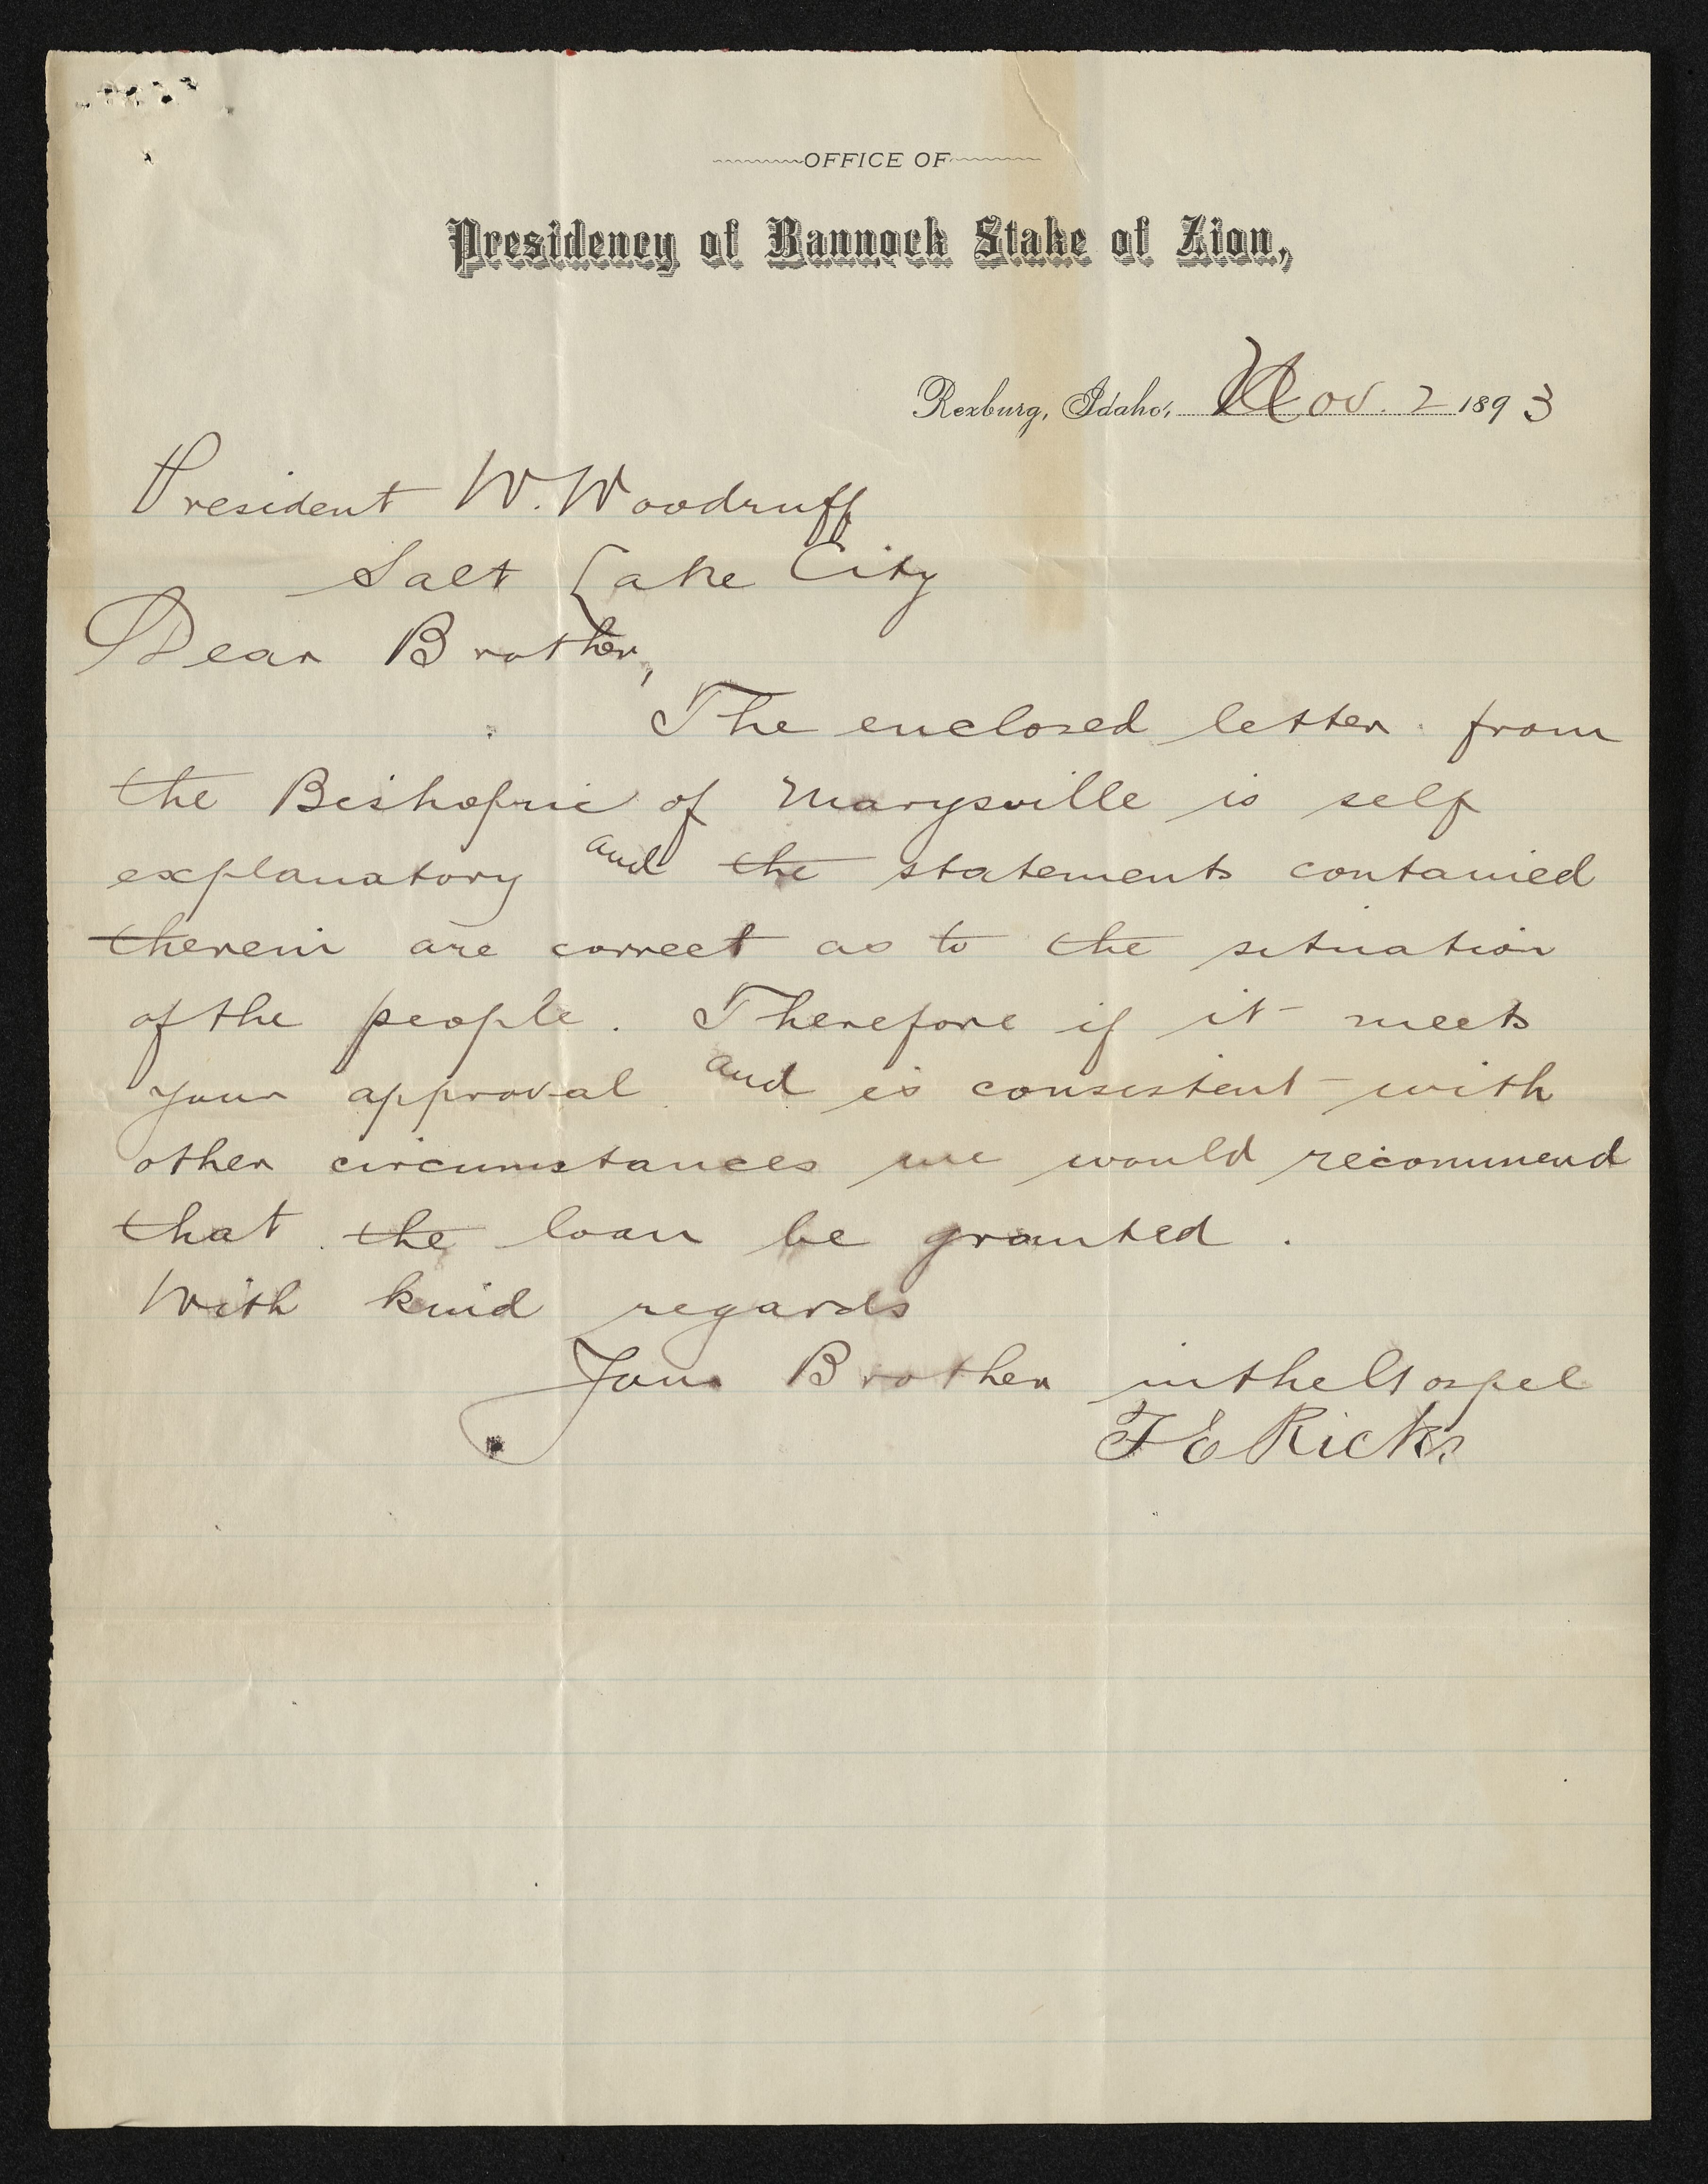 OFFICE OF
Presidency of Bannock Stake of Zion,
Rexburg, Idaho, Nov. 2 1893
President W. Woodruff
Salt Lake City
Dear Brother,
The enclosed letter from
the Bishopric of Marysville is self
explanatory and the statements contained
therein are correct as to the situation
of the people. Therefore if it meets
your approval and is consistent with
other circumstances we would recommend
that the loan be granted.
With kind regards
Your Brother in the Gospel
T E Ricks